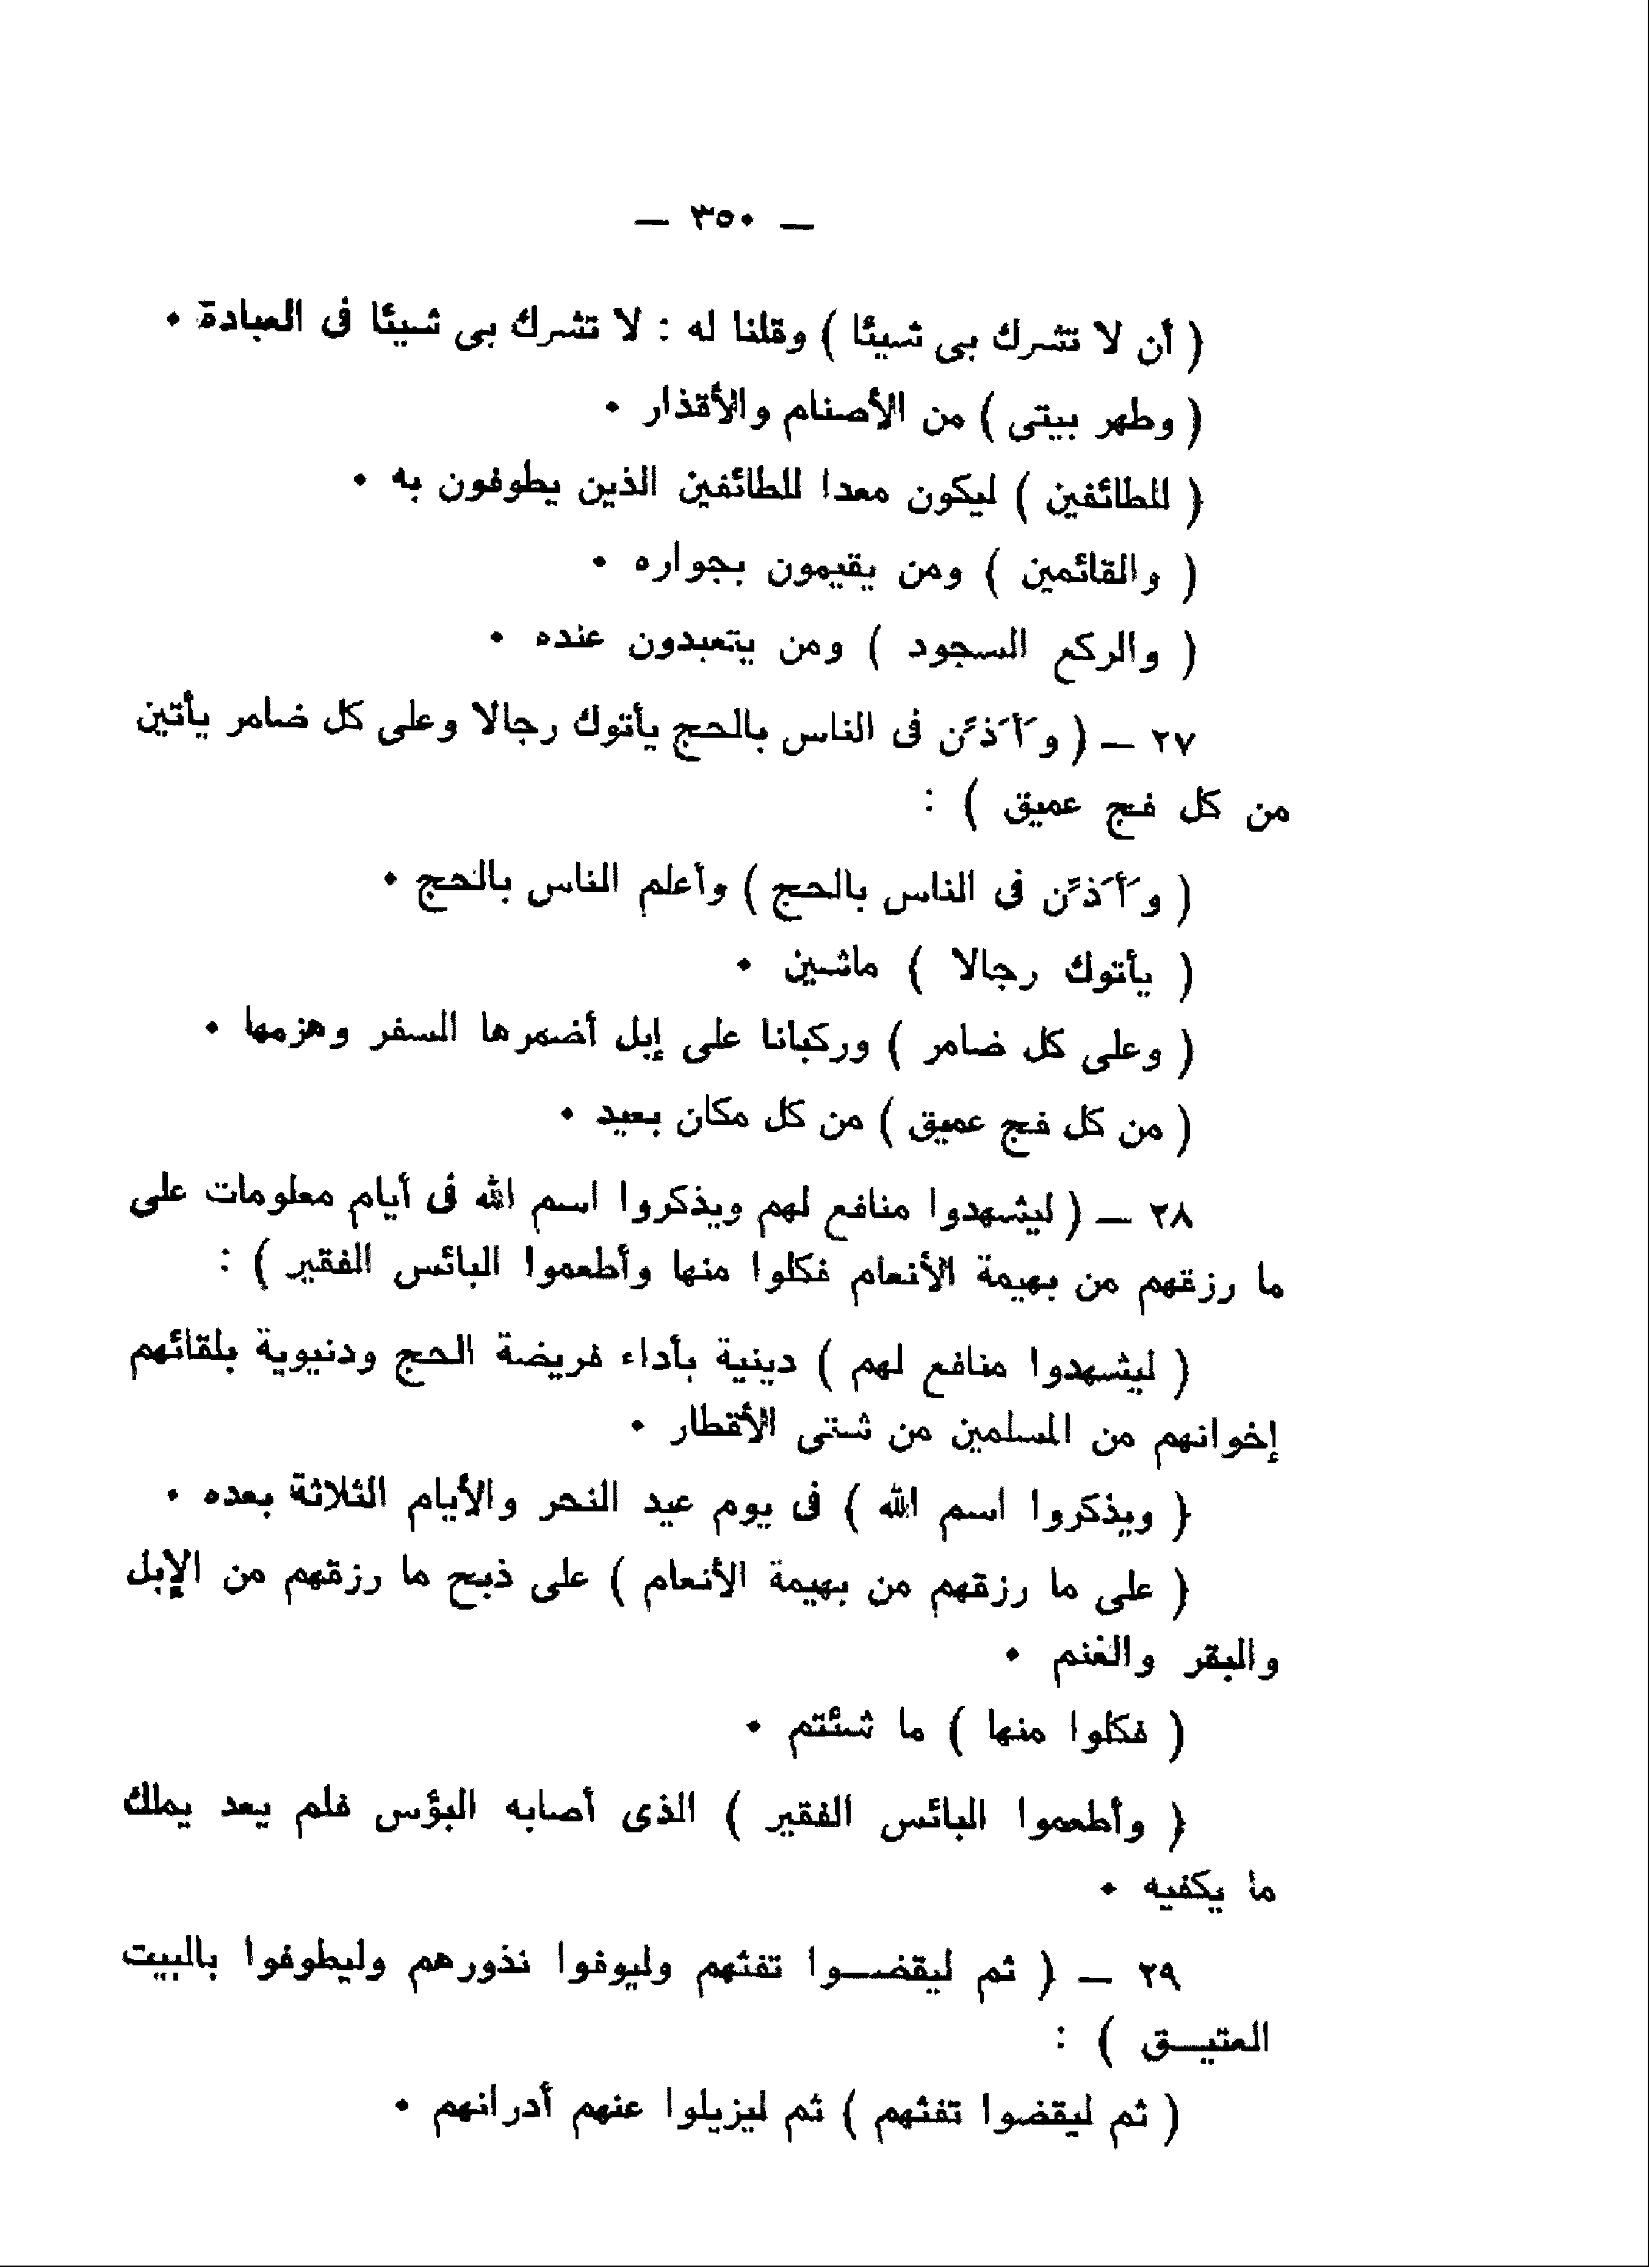 — ٣٥٠ —
( أن لا تشرك بى شيئا ) وقلنا له : لا تشرك بى شيئا فى العبادة ٠
( وطهر بيتى ) من الأصنام والأقذار ٠
( للطائفين ) ليكون معدا للطائفين الذين يطوفون به ٠
( والقائمين ) ومن يقيمون بجواره ٠
( والركع السجود ) ومن يتعبدون عنده ٠
٢٧ — ( وَأَذِّن فى الناس بالحج يأتوك رجالا وعلى كل ضامر يأتين
من كل فج عميق ) :
( وَأَذِّن فى الناس بالحج ) وأعلم الناس بالحج ٠
( يأتوك رجالا ) ماشين ٠
( وعلى كل ضامر ) وركبانا على إبل أضمرها السفر وهزمها ٠
( من كل فج عميق ) من كل مكان بعيد ٠
٢٨ — ( ليشهدوا منافع لهم ويذكروا اسم الله فى أيام معلومات على
ما رزقهم من بهيمة الأنعام فكلوا منها وأطعموا البائس الفقير ) :
( ليشهدوا منافع لهم ) دينية بأداء فريضة الحج ودنيوية بلقائهم
إخوانهم من المسلمين من شتى الأقطار ٠
( ويذكروا اسم الله ) فى يوم عيد النحر والأيام الثلاثة بعده ٠
( على ما رزقهم من بهيمة الأنعام ) على ذبح ما رزقهم من الإبل
والبقر والغنم ٠
( فكلوا منها ) ما شئتم ٠
( وأطعموا البائس الفقير ) الذى أصابه البؤس فلم يعد يملك
ما يكفيه ٠
٢٩ — ( ثم ليقضـــوا تفثهم وليوفوا نذورهم وليطوفوا بالبيت
العتيـــق ) :
( ثم ليقضوا تفثهم ) ثم ليزيلوا عنهم أدرانهم ٠